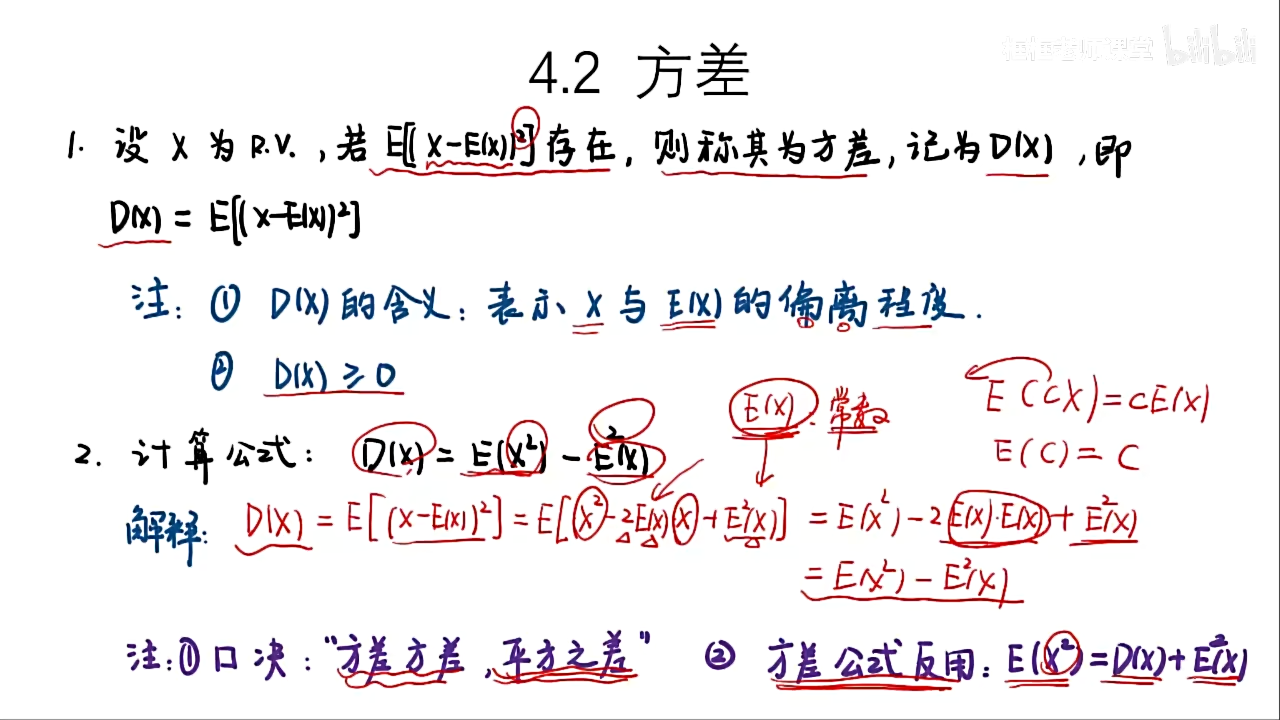 bilibili
4.2 方差
1. 设 X 为 R.V.,若 E[(X-E(X))²]存在,则称其为方差,记为D(X),即
D(X) = E[(X-E(X))²]
注: ① D(X)的含义:表示 X 与 E(X)的偏离程度.
② D(X) ≥ 0
E(X):常数
E(CX)=CE(X)
E(C)=C
2. 计算公式: D(X) = E(X²) - E²(X)
解释: D(X) = E[(X-E(X))²] = E[X²-2E(X)X+E²(X)] = E(X²)-2E(X)·E(X)+E²(X)
= E(X²)-E²(X)
注:①口决:"方差方差,平方之差" ② 方差公式反用: E(X²)=D(X)+E²(X)